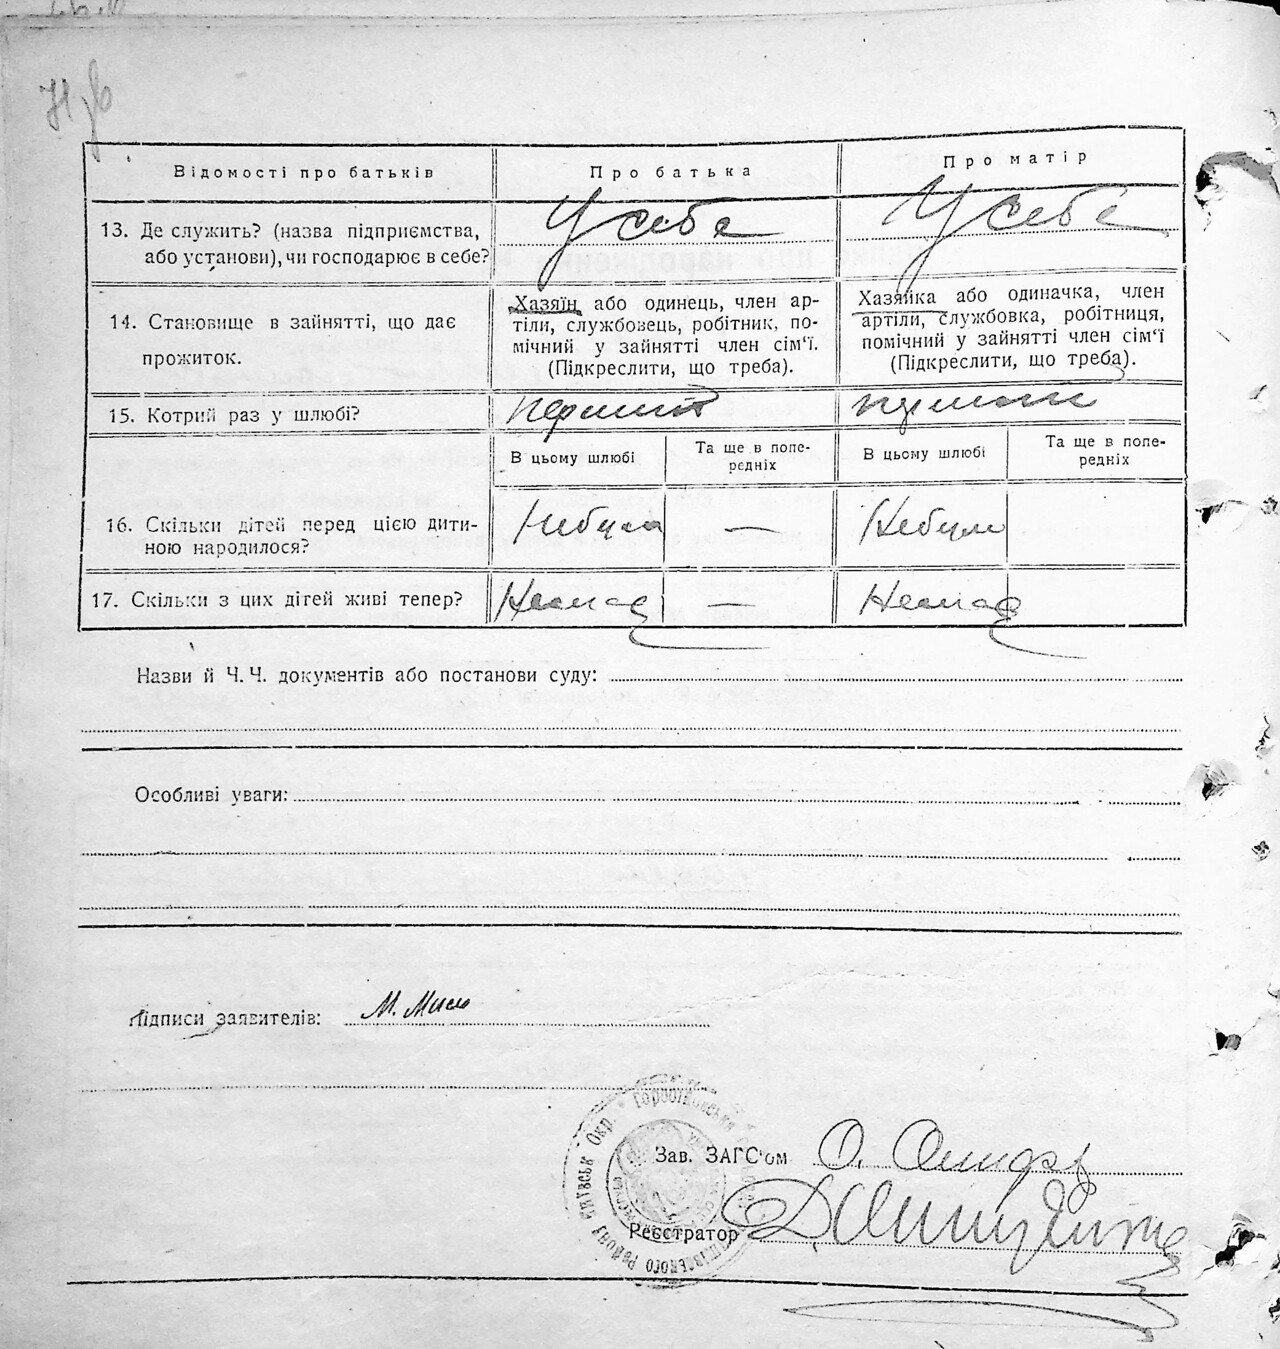 Відомості про батьків
Про батька
Про матір
13. Де служить? (назва підприємства,
або установи), чи господарює в себе?
У себе
У себе
14. Становище в зайнятті, що дає
прожиток.
Хазяїн або одинець, член ар-
тіли, службовець, робітник, по-
мічний у зайнятті член сім'ї.
(Підкреслити, що треба).
Хазяйка або одиначка, член
артіли, службовка, робітниця,
помічний у зайнятті член сім'ї
(Підкреслити, що треба).
15. Котрий раз у шлюбі?
перший
В цьому шлюбі
Та ще в попе-
редніх
В цьому шлюбі
Та ще в попе-
редніх
16. Скільки дітей перед цією дити-
ною народилося?
Небуло
—
Небуло
17. Скільки з цих дітей живі тепер?
Немає
—
Немає
Назви й Ч. Ч. документів або постанови суду:
Особливі уваги:
Підписи заявителів:
Зав. ЗАГС'ом
Реєстратор